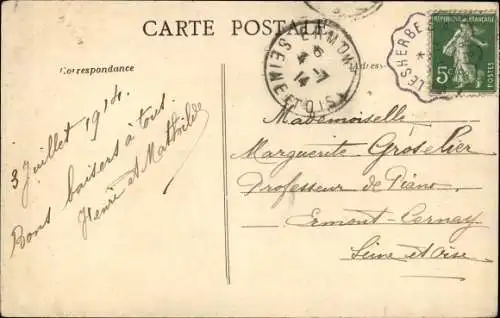 CARTE POSTALE
Correspondance
Adresse
3 Juillet 1914.
Bons baisers à tous.
Henri et Mathilde
ERMONT
4 -7
14
SEINE ET OISE
LES HERBE
REPUBLIQUE FRANÇAISE
5c
POSTES
Mademoiselle
Marguerite Groselier
Professeur de Piano
Ermont-Cernay
Seine et Oise.